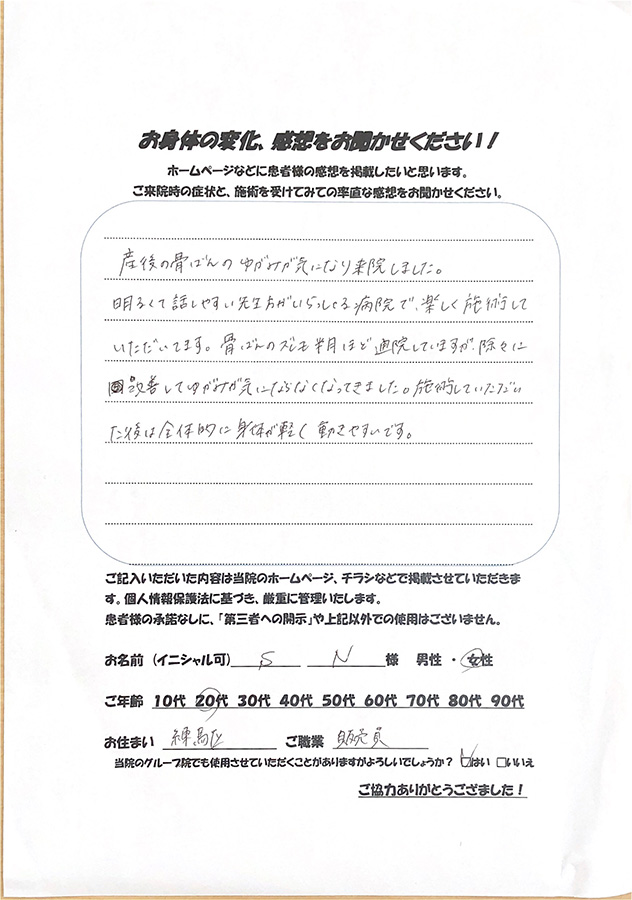 お身体の変化、感想をお聞かせください！
ホームページなどに患者様の感想を掲載したいと思います。
ご来院時の症状と、施術を受けてみての率直な感想をお聞かせください。
産後の骨ばんのゆがみが気になり来院しました。
明るくて話しやすい先生方がいらっしゃる病院で、楽しく施術して
いただいてます。骨ばんのズレも半月ほど通院していますが、除々に
改善してゆがみが気にならなくなってきました。施術していただい
た後は全体的に身体が軽く動きやすいです。
ご記入いただいた内容は当院のホームページ、チラシなどで掲載させていただきま
す。個人情報保護法に基づき、厳重に管理いたします。
患者様の承諾なしに、「第三者への開示」や上記以外での使用はございません。
お名前（イニシャル可） S N 様 男性 ・ 女性
ご年齢 10代 20代 30代 40代 50代 60代 70代 80代 90代
お住まい 練馬区 ご職業 販売員
当院のグループ院でも使用させていただくことがありますがよろしいでしょうか？ ☑はい □いいえ
ご協力ありがとうござました！